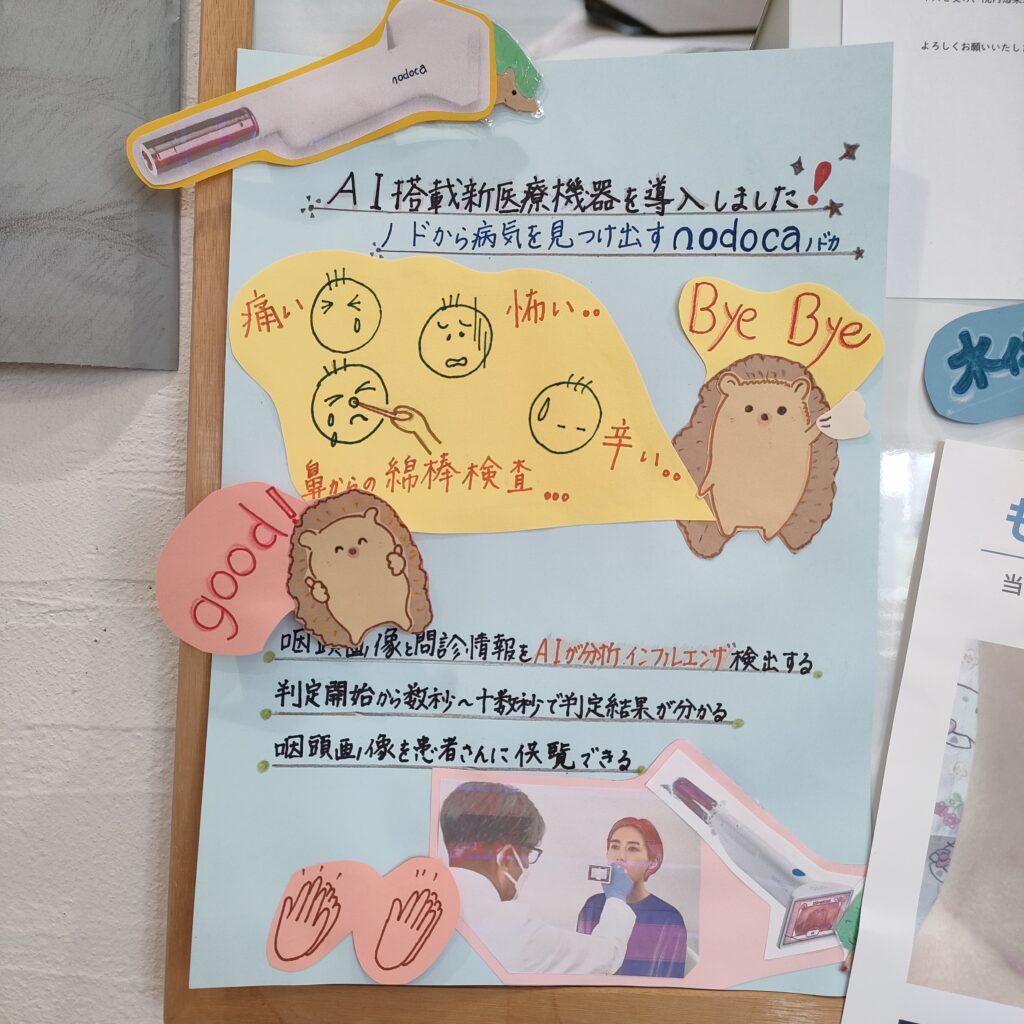 nodoca
よろしくお願いいたしま
AI搭載新医療機器を導入しました!
ノドから病気を見つけ出すnodocaノドカ
痛い
怖い..
Bye Bye
辛い..
鼻からの綿棒検査...
good!
咽頭画像と問診情報をAIが分析インフルエンザ検出する
判定開始から数秒~十数秒で判定結果が分かる
咽頭画像を患者さんに供覧できる
も
当